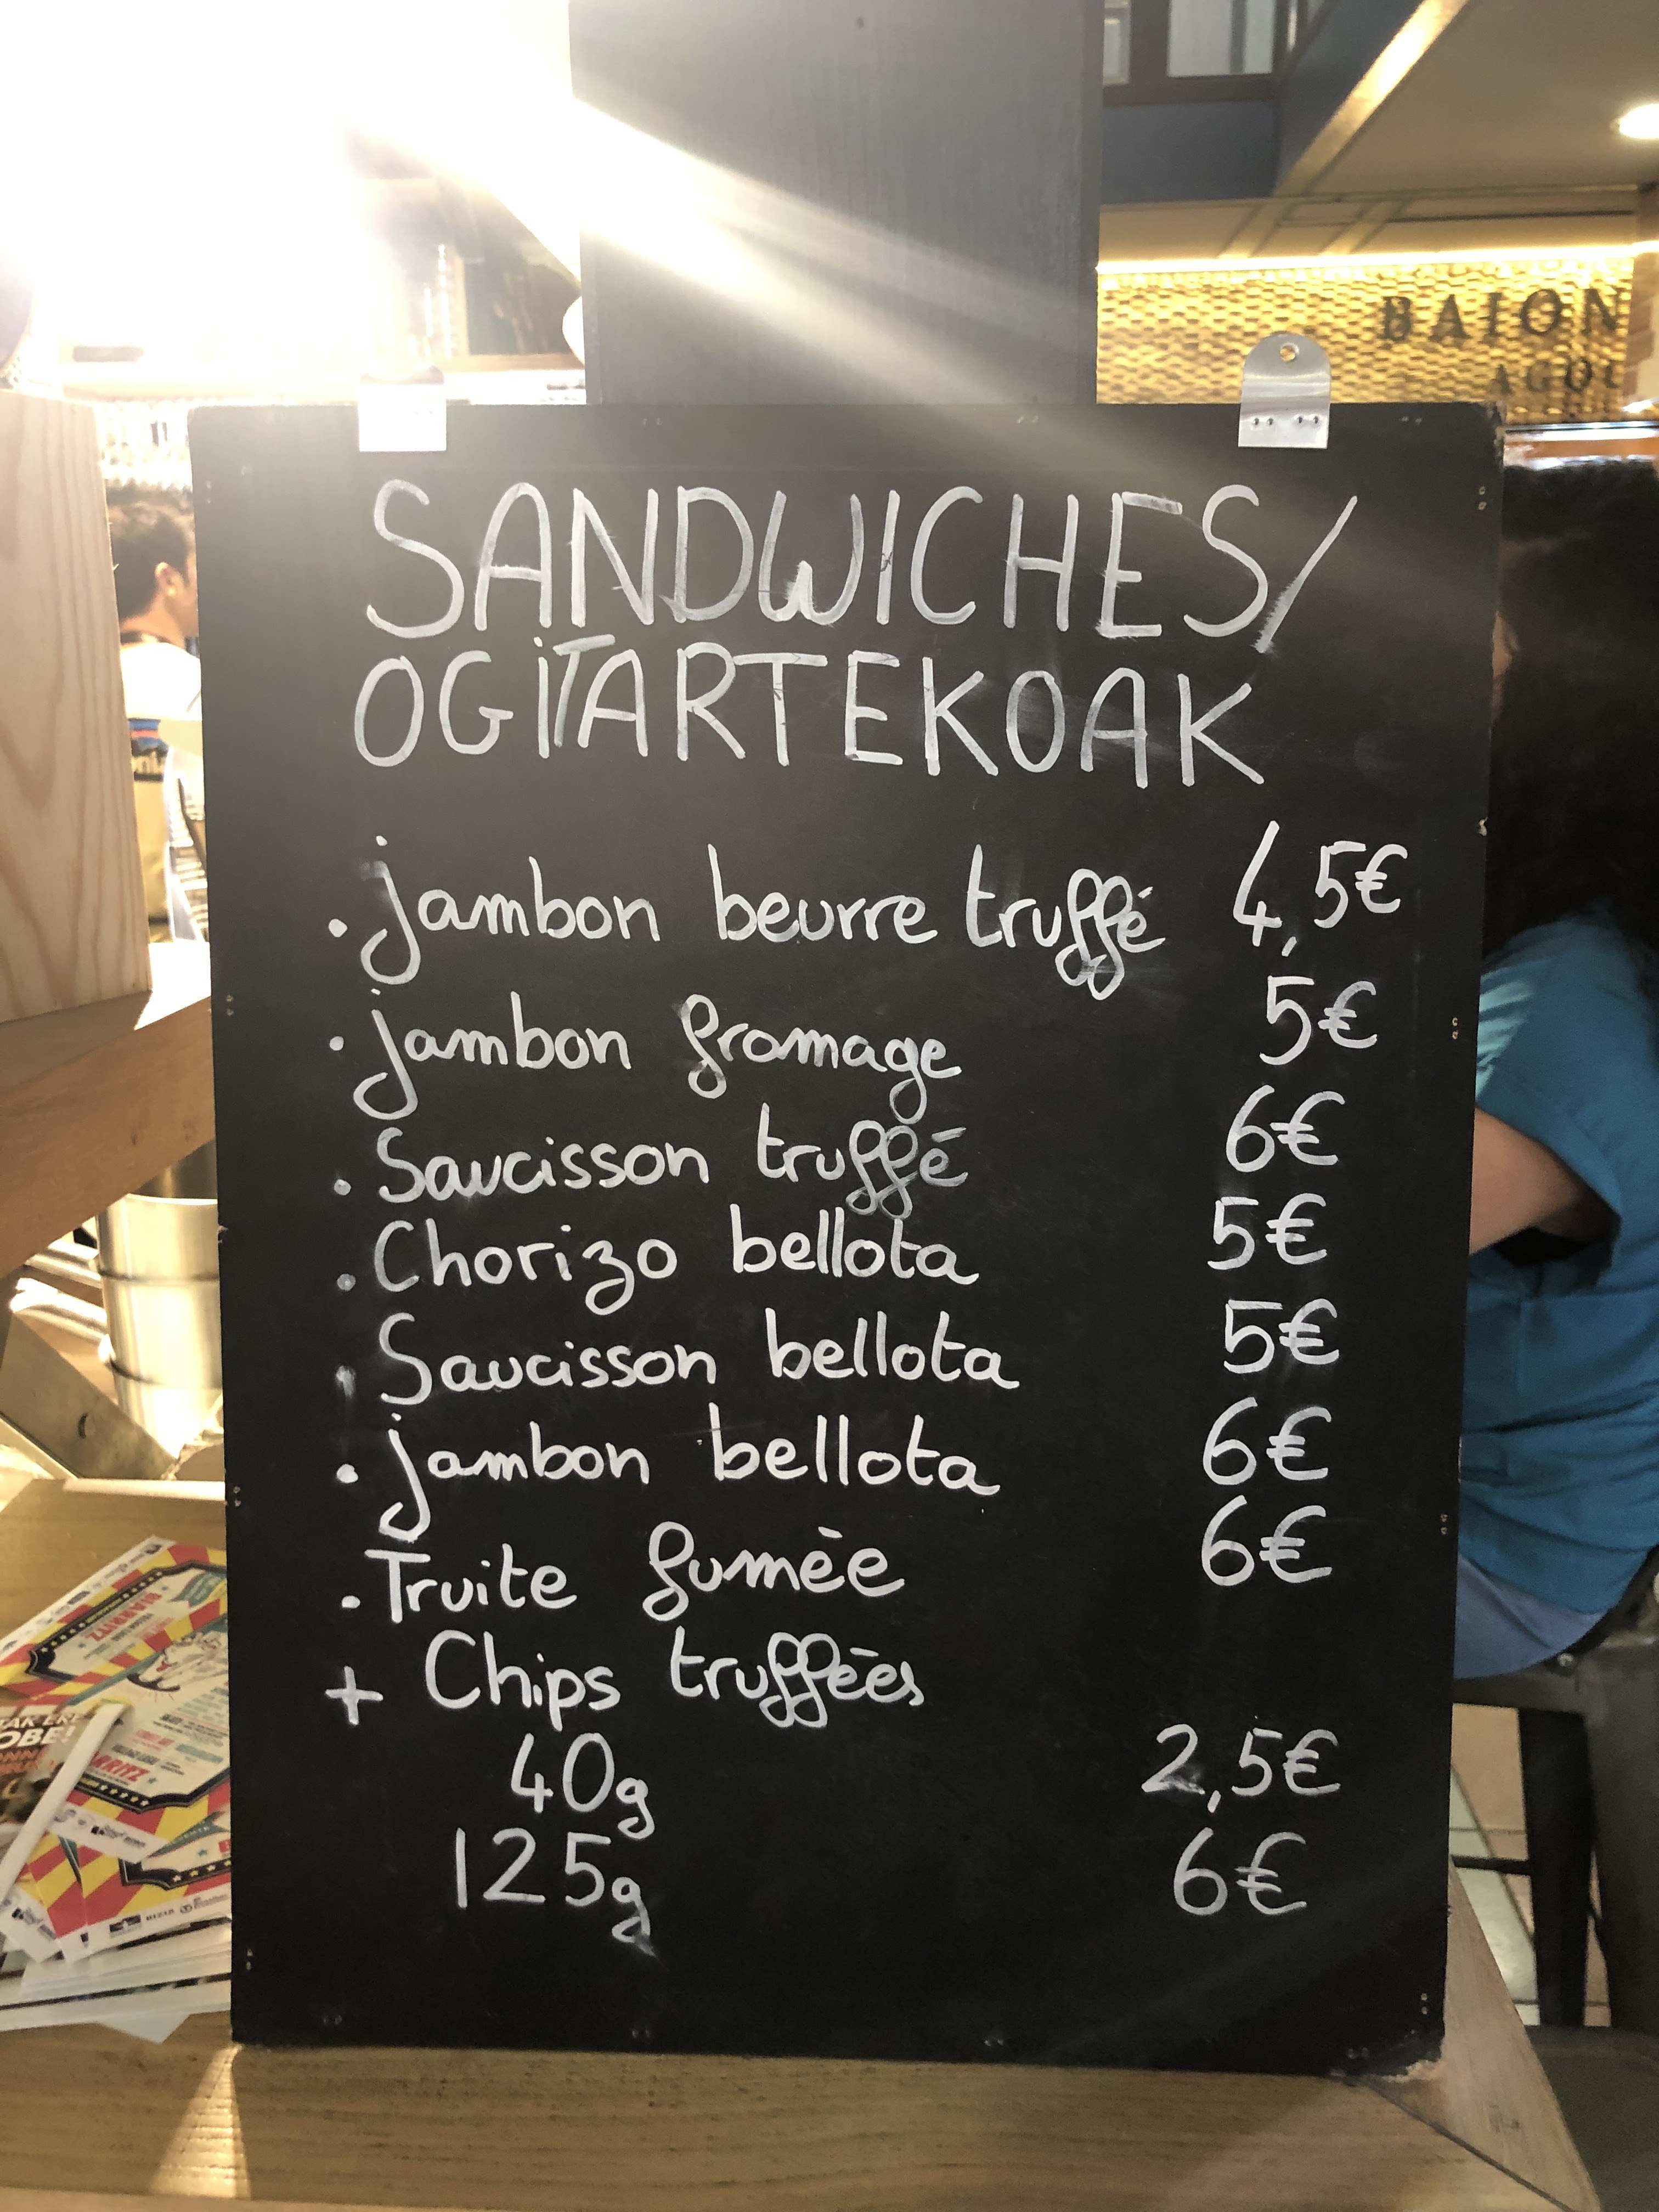 BAION
AGOU
SANDWICHES/
OGITARTEKOAK
. jambon beurre truffé 4,5€
. jambon fromage 5€
. Saucisson truffé 6€
. Chorizo bellota 5€
. Saucisson bellota 5€
. jambon bellota 6€
. Truite fumèe 6€
+ Chips truffèes
40g 2,5€
125g 6€
BIARRITZ
TAK ERE
OBE!